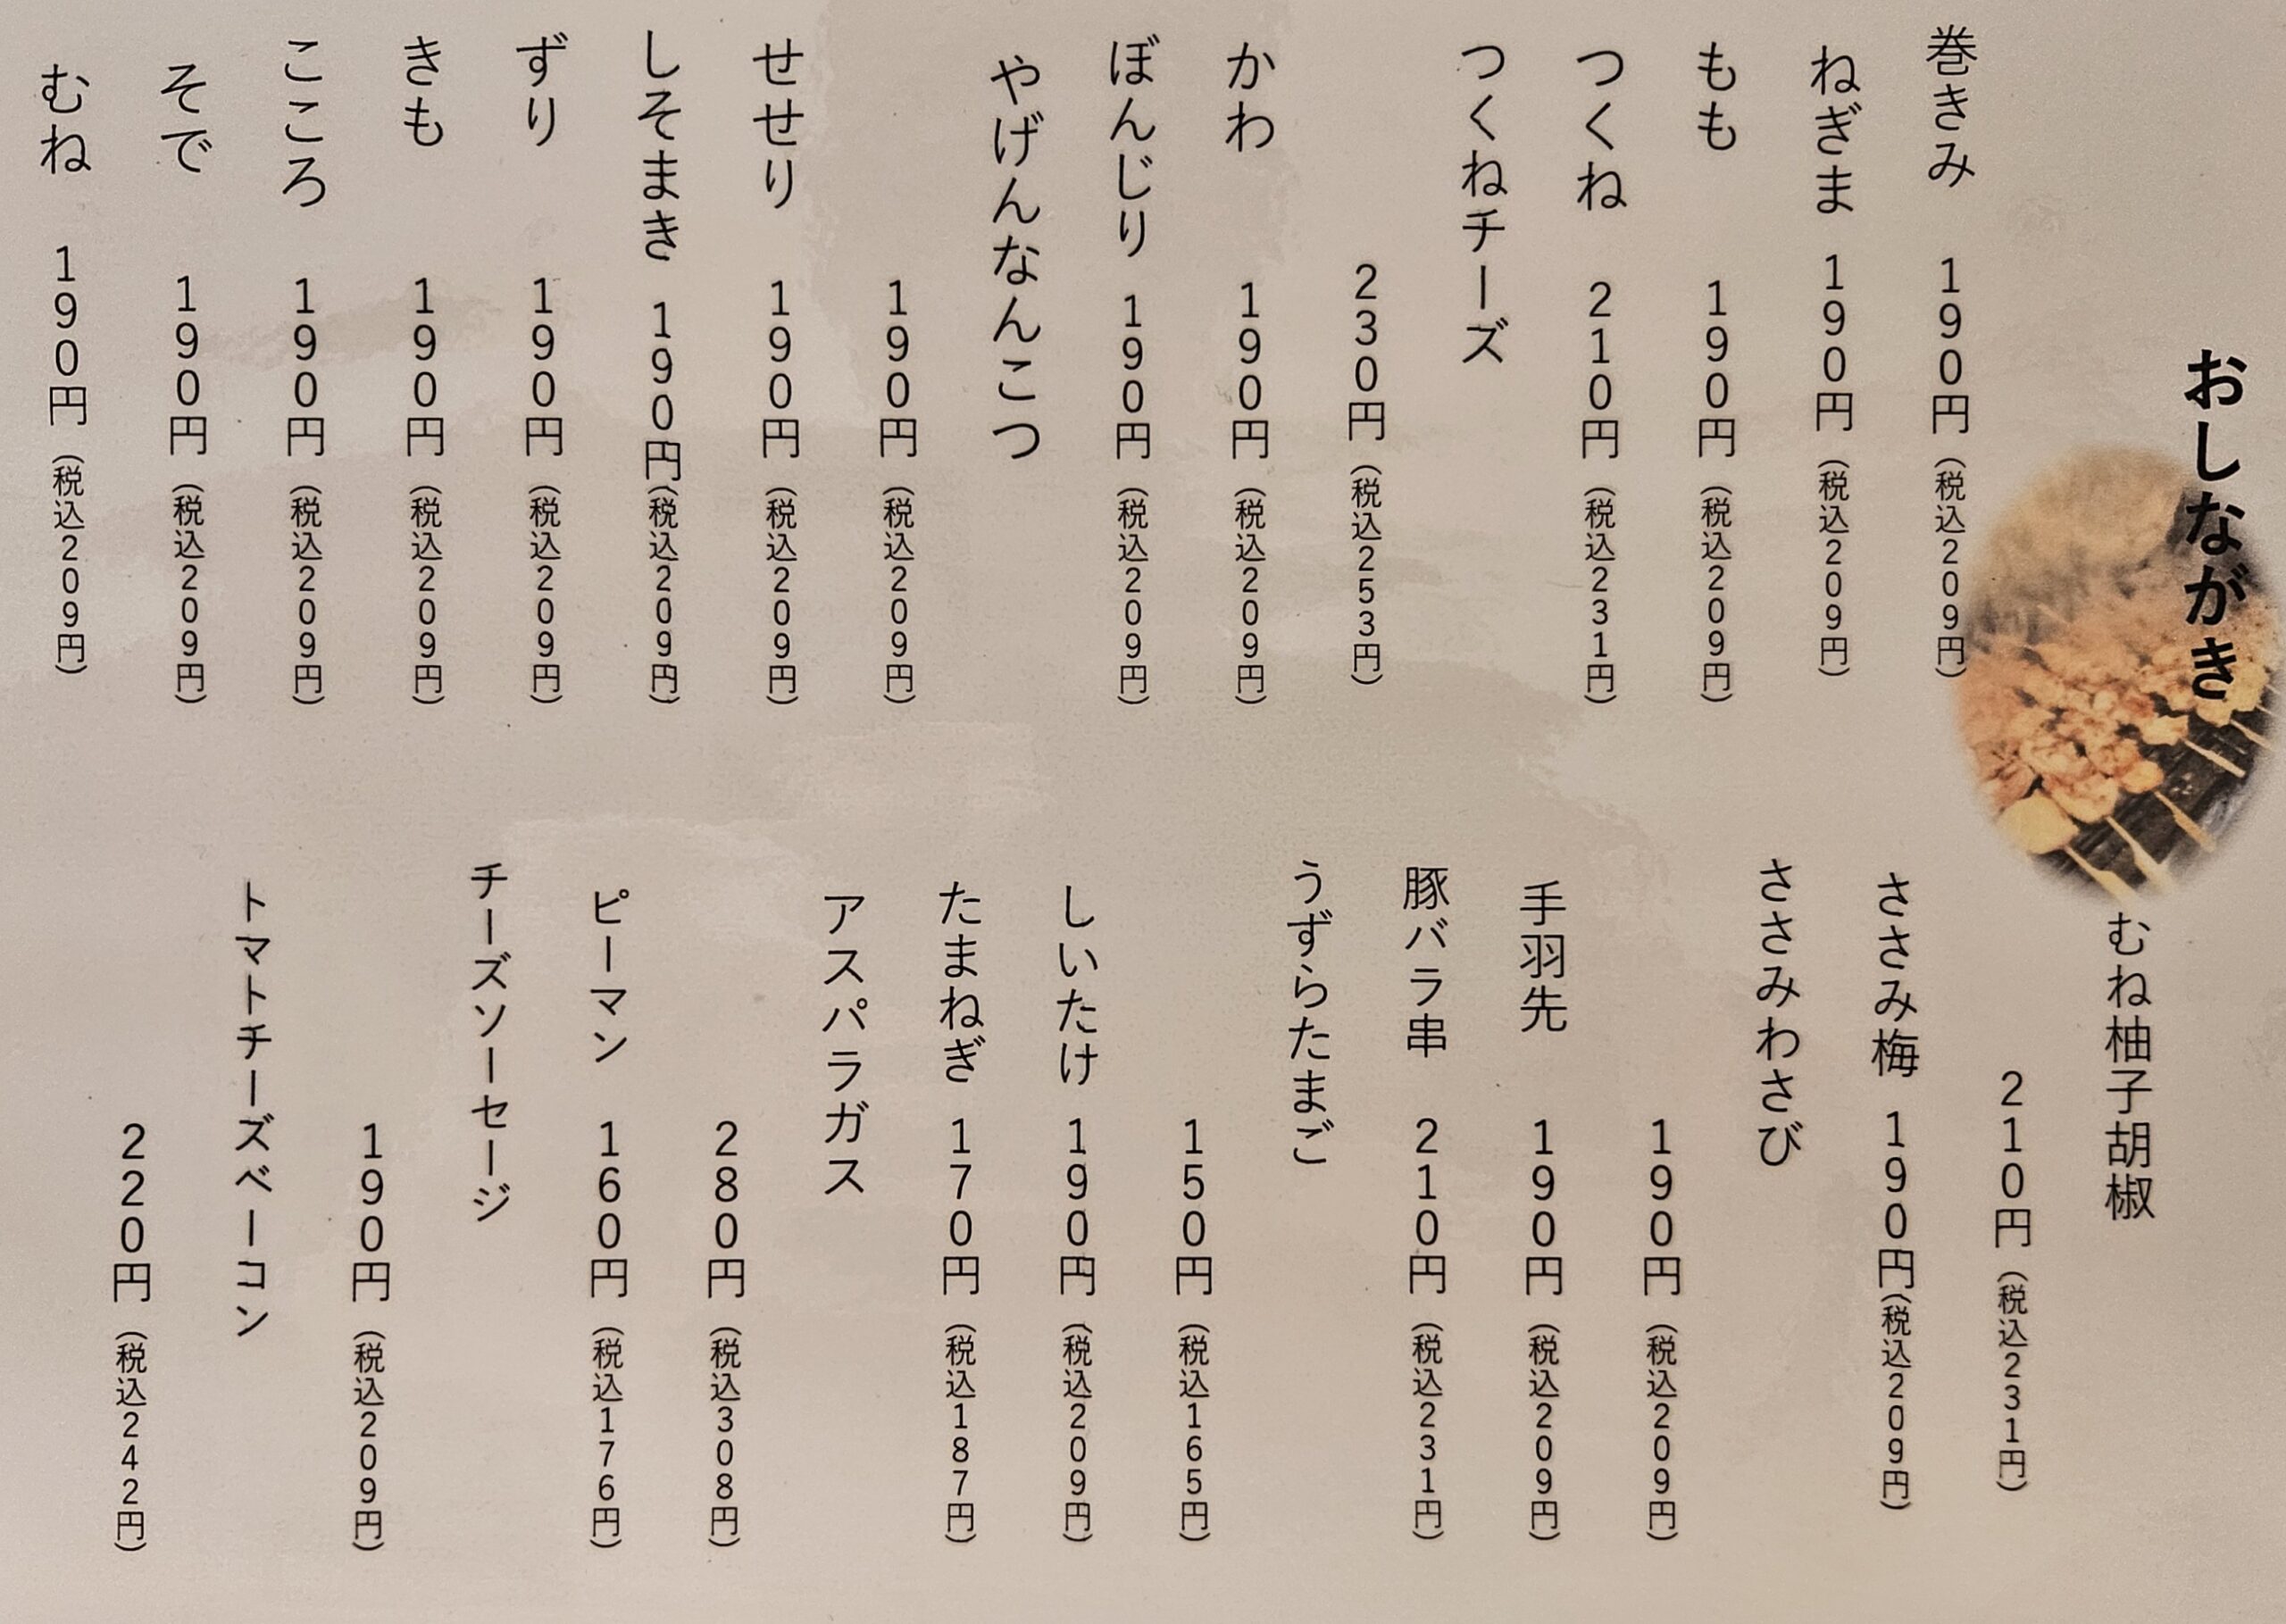 おしながき
巻きみ 190円（税込209円）
ねぎま 190円（税込209円）
もも 190円（税込209円）
つくね 210円（税込231円）
つくねチーズ
230円（税込253円）
かわ 190円（税込209円）
ぼんじり 190円（税込209円）
やげんなんこつ
190円（税込209円）
せせり 190円（税込209円）
しそまき 190円（税込209円）
ずり 190円（税込209円）
きも 190円（税込209円）
こころ 190円（税込209円）
そで 190円（税込209円）
むね 190円（税込209円）
むね柚子胡椒
210円（税込231円）
ささみ梅 190円（税込209円）
ささみわさび
190円（税込209円）
手羽先 190円（税込209円）
豚バラ串 210円（税込231円）
うずらたまご
150円（税込165円）
しいたけ 190円（税込209円）
たまねぎ 170円（税込187円）
アスパラガス
280円（税込308円）
ピーマン 160円（税込176円）
チーズソーセージ
190円（税込209円）
トマトチーズベーコン
220円（税込242円）